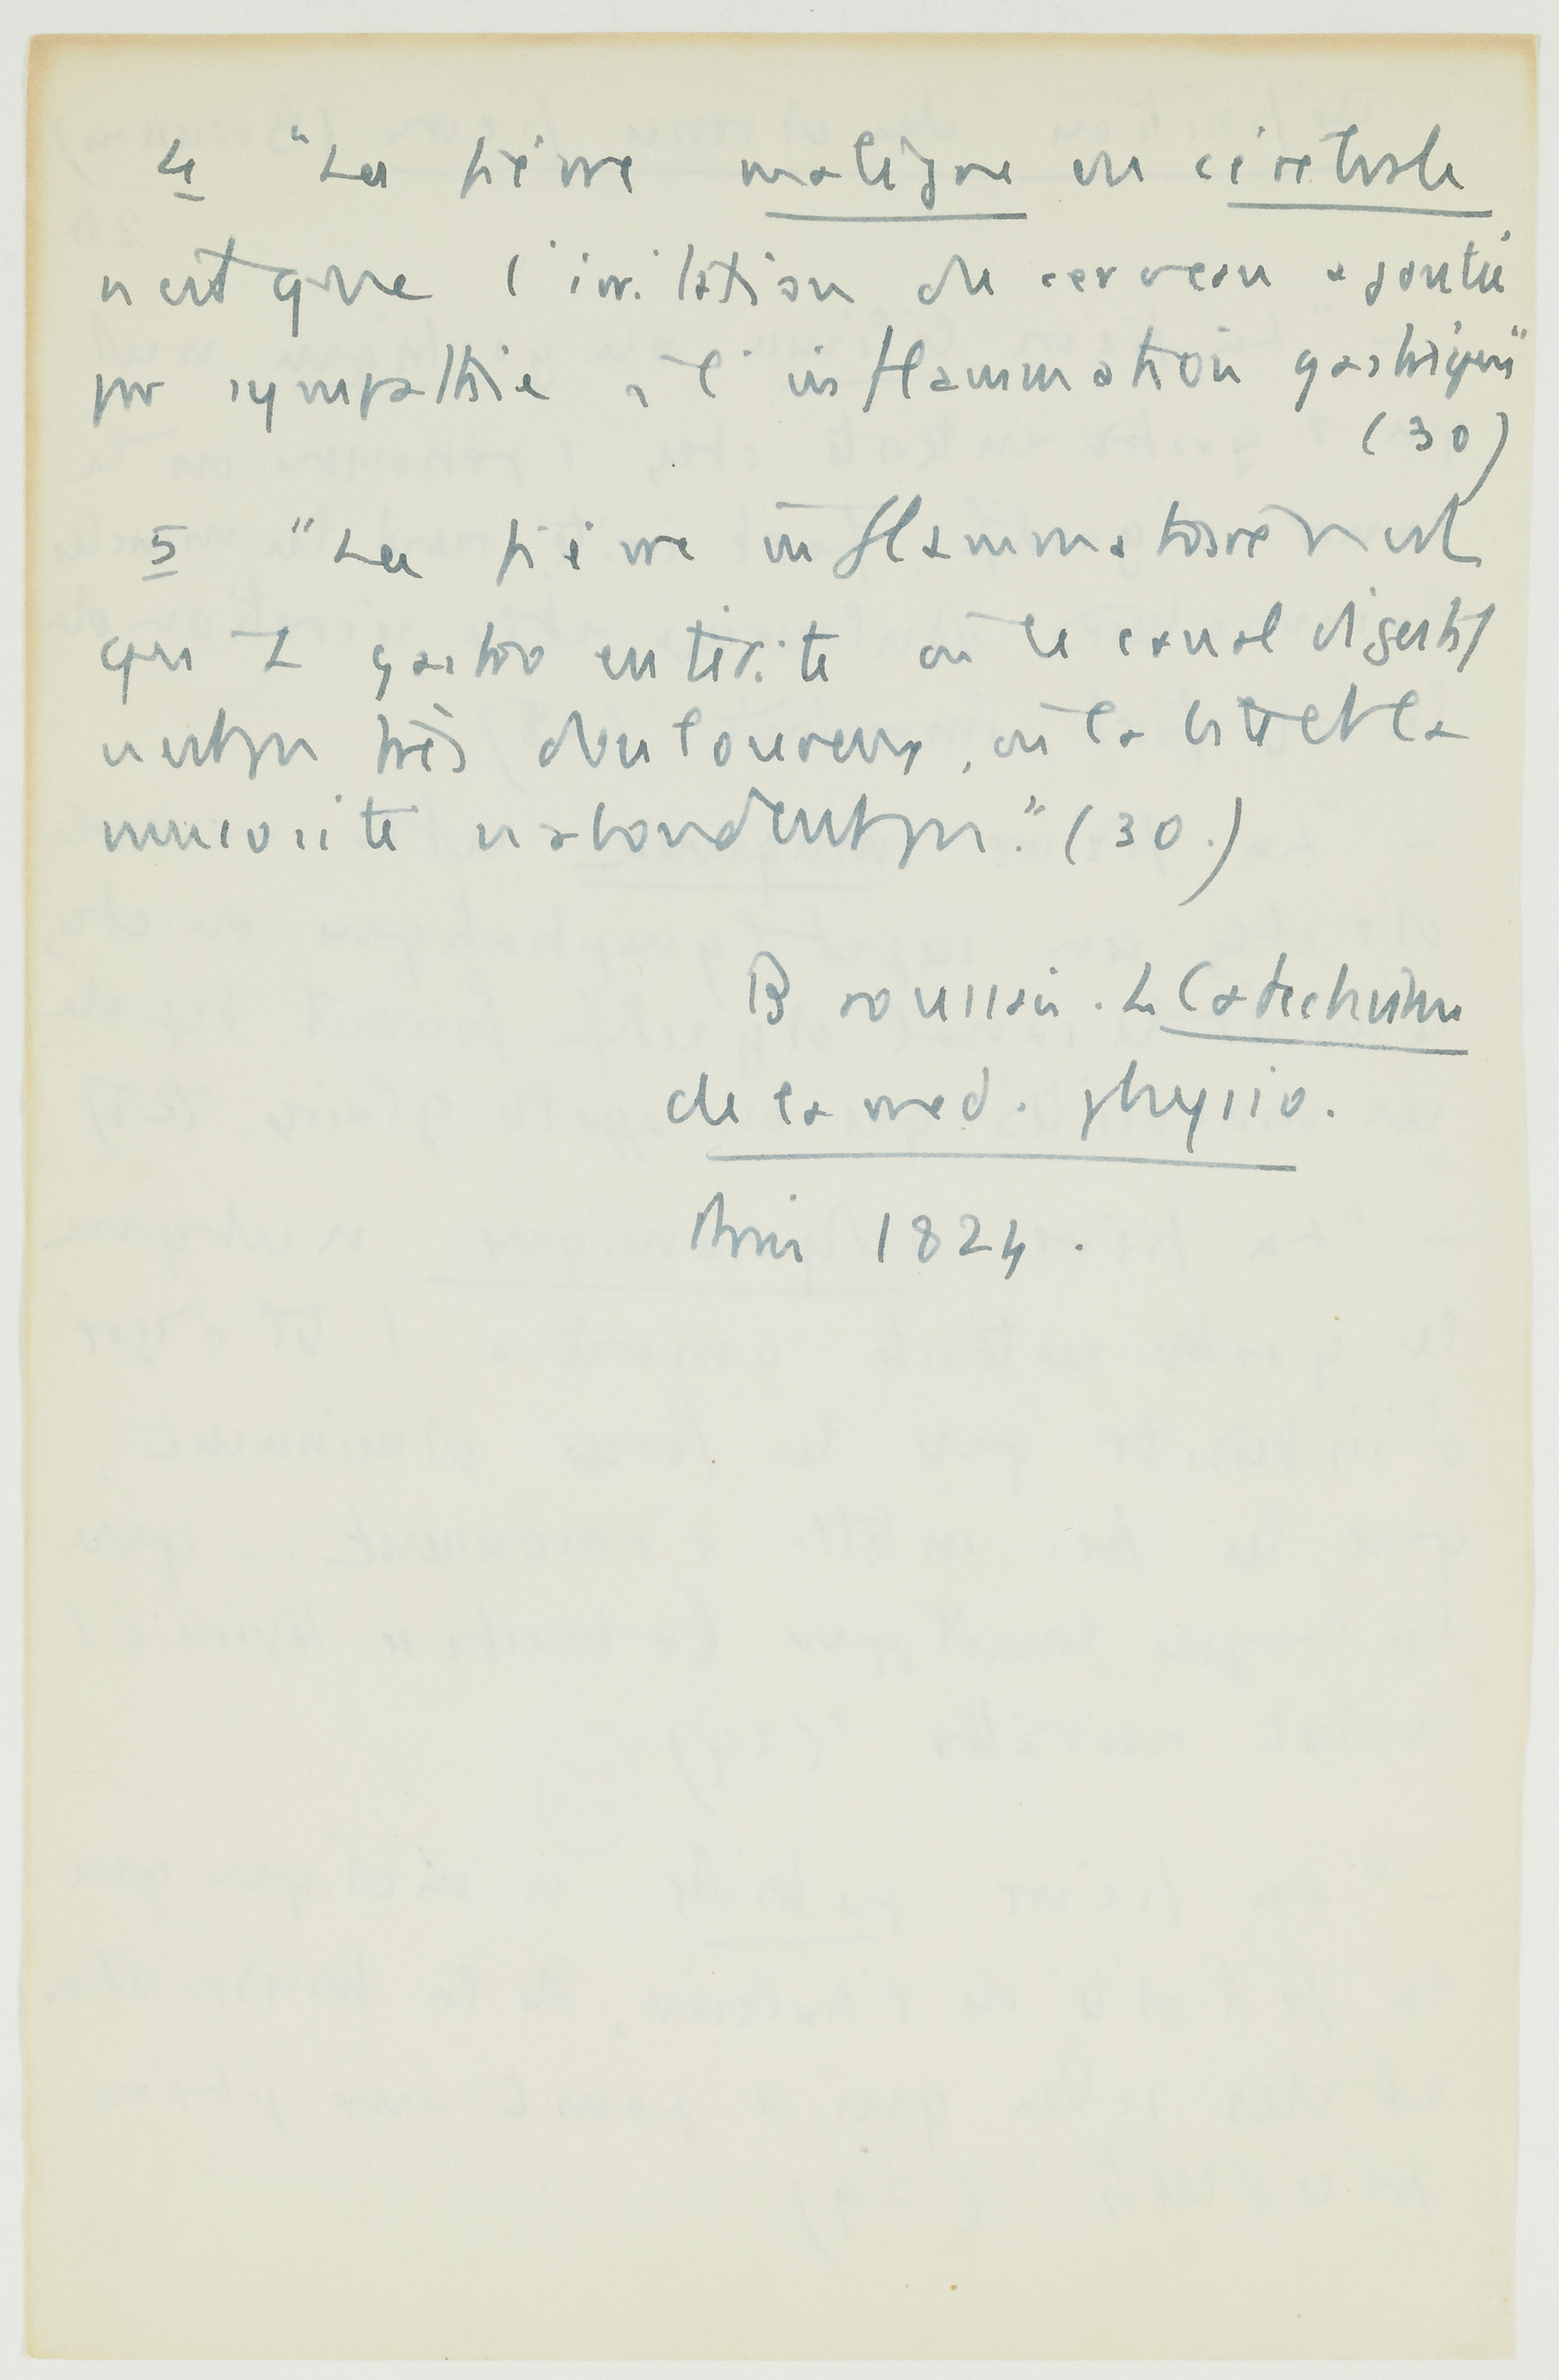 4 "La fièvre maligne ou cérébrale
n'est que l'irritation du cerveau ajoutée
par sympathie à l'inflammation gastrique"
(30)
5 "La fièvre inflammatoire n'est
que la gastro entérite où le canal digestif
n'est pas très douloureux, où la bile et la
mucosité n'abondent pas." (30.)
Broussais. Le Catéchisme
de la med. physio.
Paris 1824.